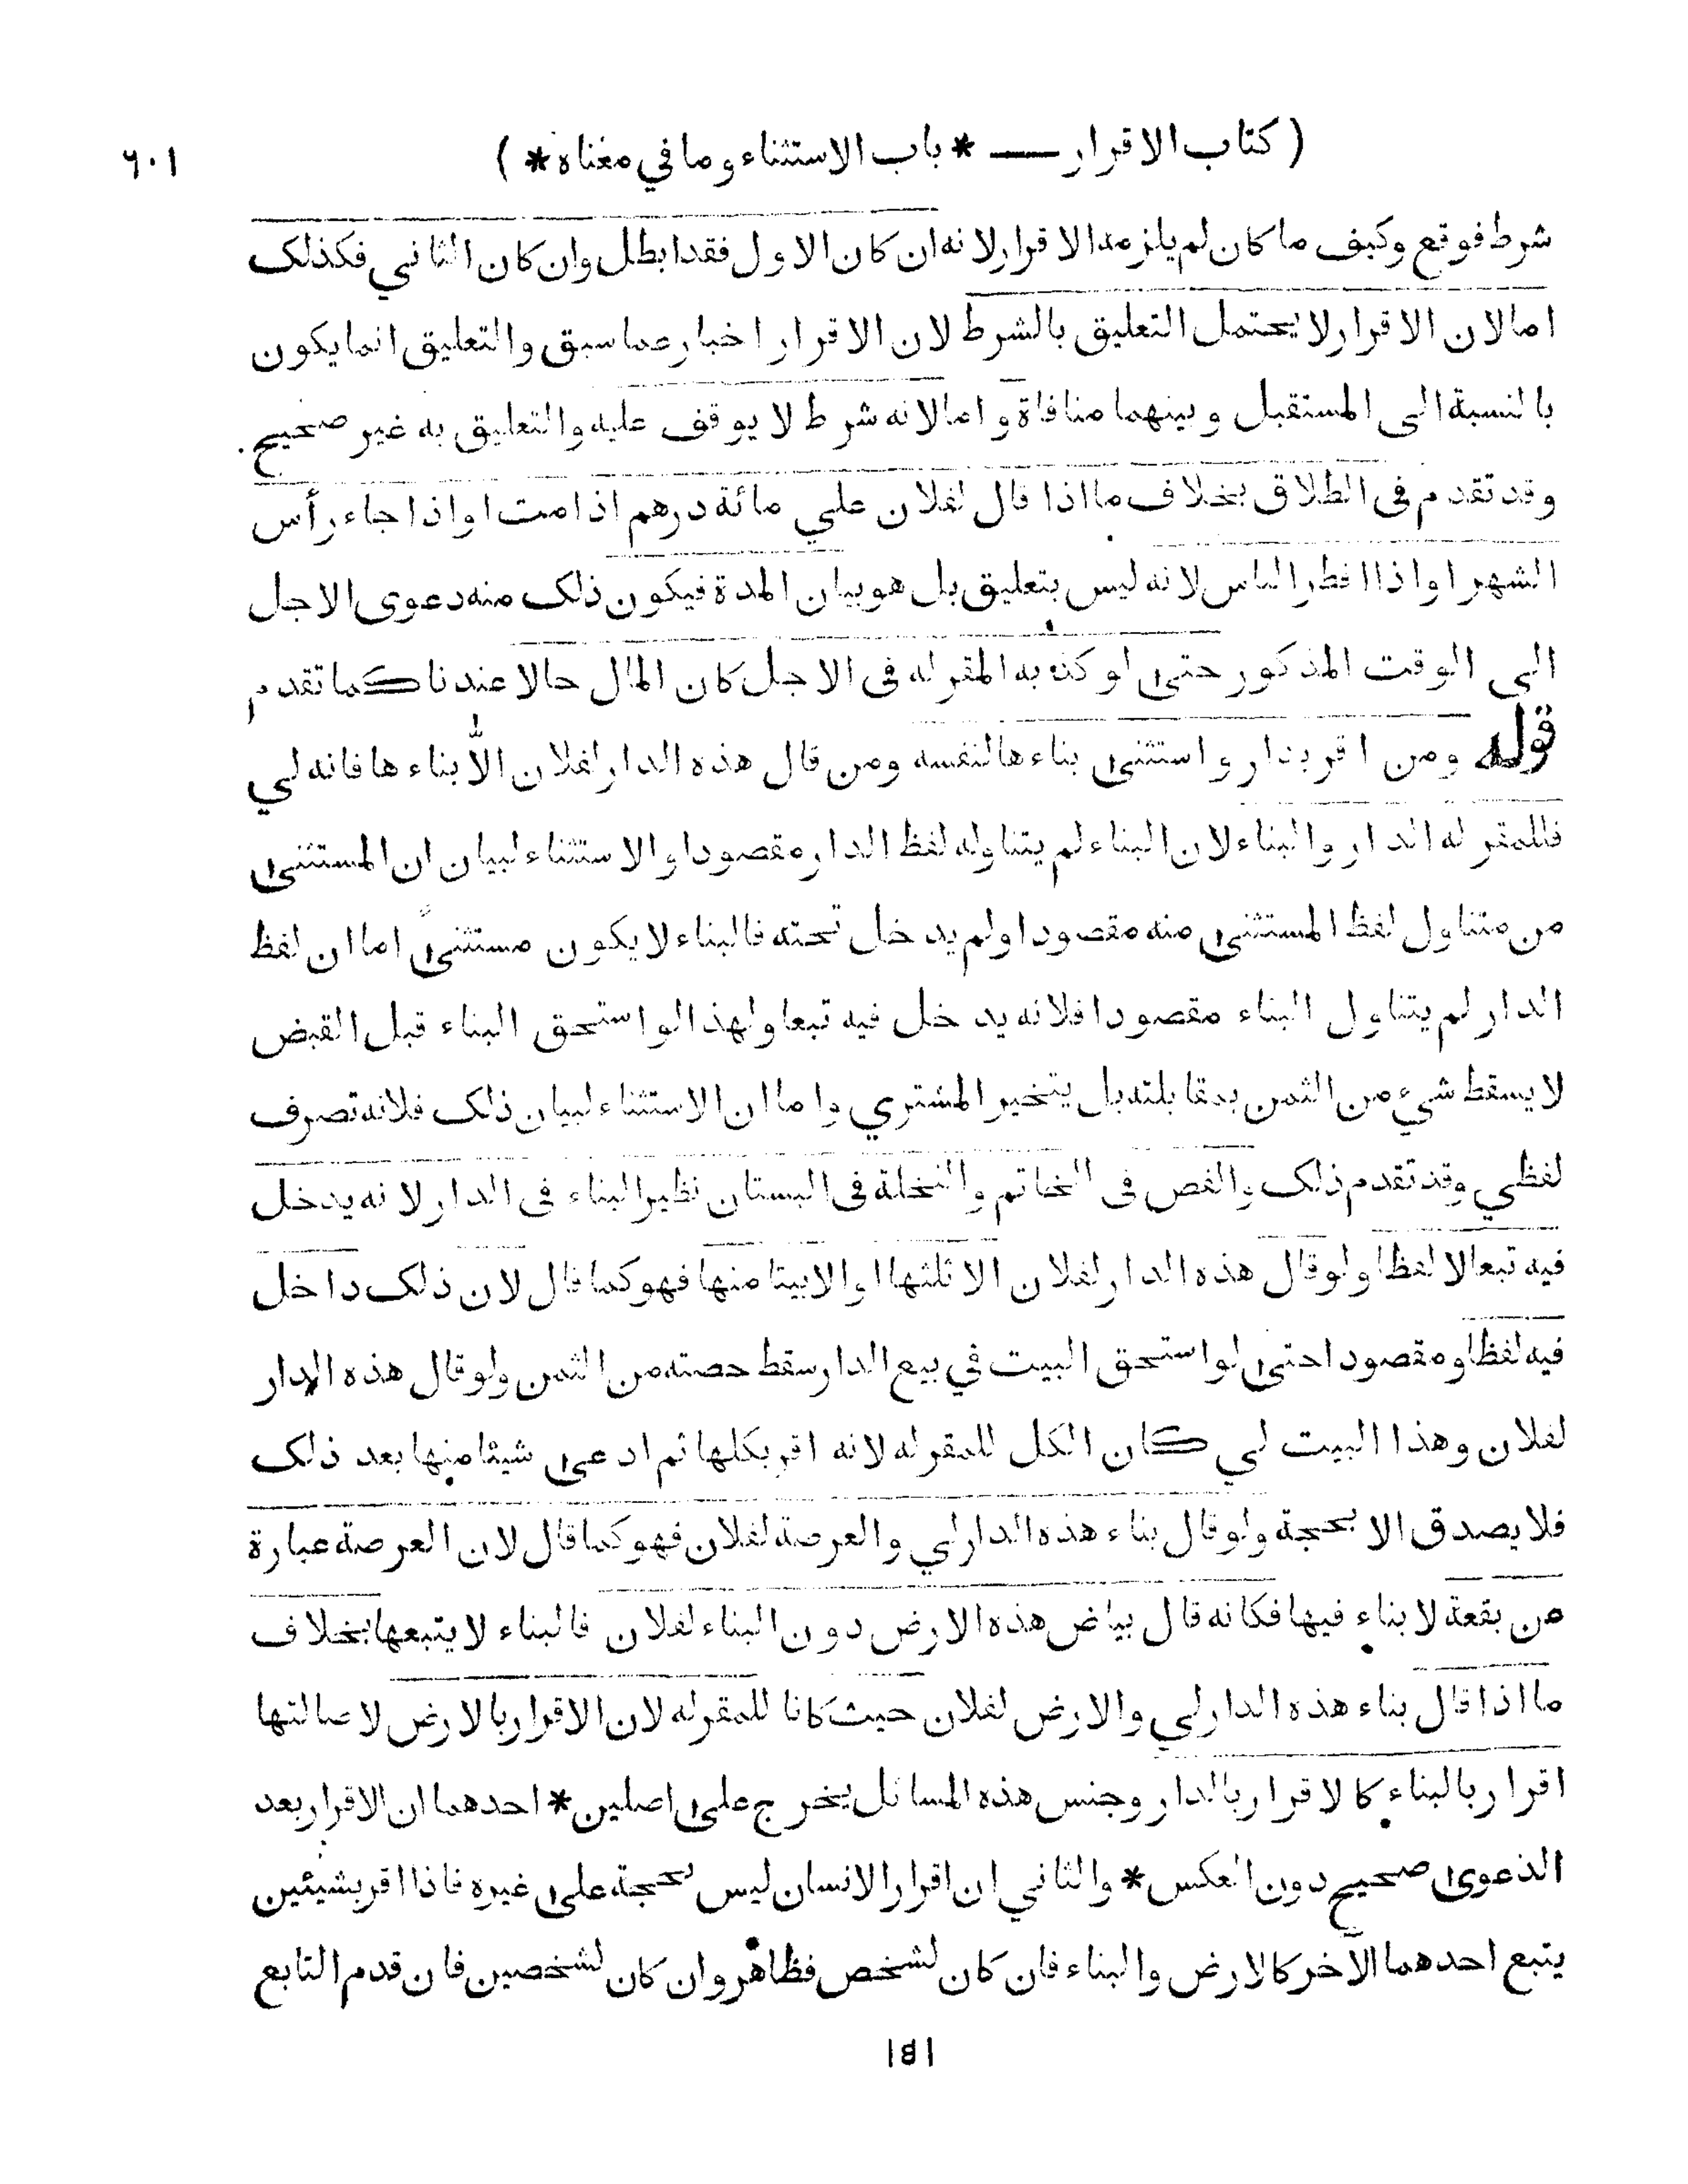 ( كتاب الاقرار — * باب الاستثناء وما في معناه * ) ٦٠١
شرط فوقع وكيف ما كان لم يلزمه الاقرار لانه ان كان الاول فقد ابطل وان كان الثاني فكذلك
اما لان الاقرار لا يحتمل التعليق بالشرط لان الاقرار اخبار عما سبق والتعليق انما يكون
بالنسبة الى المستقبل وبينهما منافاة واما لانه شرط لا يوقف عليه والتعليق به غير صحيح
وقد تقدم في الطلاق بخلاف ما اذا قال لفلان علي مائة درهم اذا مت او اذا جاء رأس
الشهر او اذا افطر الناس لانه ليس بتعليق بل هو بيان المدة فيكون ذلك منه دعوى الاجل
الى الوقت المذكور حتى لو كذبه المقر له في الاجل كان المال حالا عندنا كما تقدم
قوله ومن اقر بدار واستثنى بناءها لنفسه ومن قال هذه الدار لفلان الّا بناءها فانه لي
فللمقر له الدار والبناء لان البناء لم يتناوله لفظ الدار مقصودا والاستثناء لبيان ان المستثنى
من متناول لفظ المستثنى منه مقصودا ولم يدخل تحته فالبناء لا يكون مستثنىً اما ان لفظ
الدار لم يتناول البناء مقصودا فلانه يدخل فيه تبعا ولهذا لو استحق البناء قبل القبض
لا يسقط شيء من الثمن بمقابلته بل يتخير المشتري واما ان الاستثناء لبيان ذلك فلانه تصرف
لفظي وقد تقدم ذلك والفص في الخاتم والنخلة في البستان نظير البناء في الدار لانه يدخل
فيه تبعا لا لفظا ولو قال هذه الدار لفلان الا ثلثها او الا بيتا منها فهو كما قال لان ذلك داخل
فيه لفظا ومقصودا حتى لو استحق البيت في بيع الدار سقط حصته من الثمن ولو قال هذه الدار
لفلان وهذا البيت لي كان الكل للمقر له لانه اقر بكلها ثم ادعى شيئا منها بعد ذلك
فلا يصدق الا بحجة ولو قال بناء هذه الدار لي والعرصة لفلان فهو كما قال لان العرصة عبارة
من بقعة لا بناء فيها فكانه قال بياض هذه الارض دون البناء لفلان فالبناء لا يتبعها بخلاف
ما اذا قال بناء هذه الدار لي والارض لفلان حيث كانا للمقر له لان الاقرار بالارض لاصالتها
اقرار بالبناء كالاقرار بالدار وجنس هذه المسائل يخرج على اصلين * احدهما ان الاقرار بعد
الدعوى صحيح دون العكس * والثاني ان اقرار الانسان ليس بحجة على غيره فاذا اقر بشيئين
يتبع احدهما الآخر كالارض والبناء فان كان لشخص فظاهر وان كان لشخصين فان قدم التابع